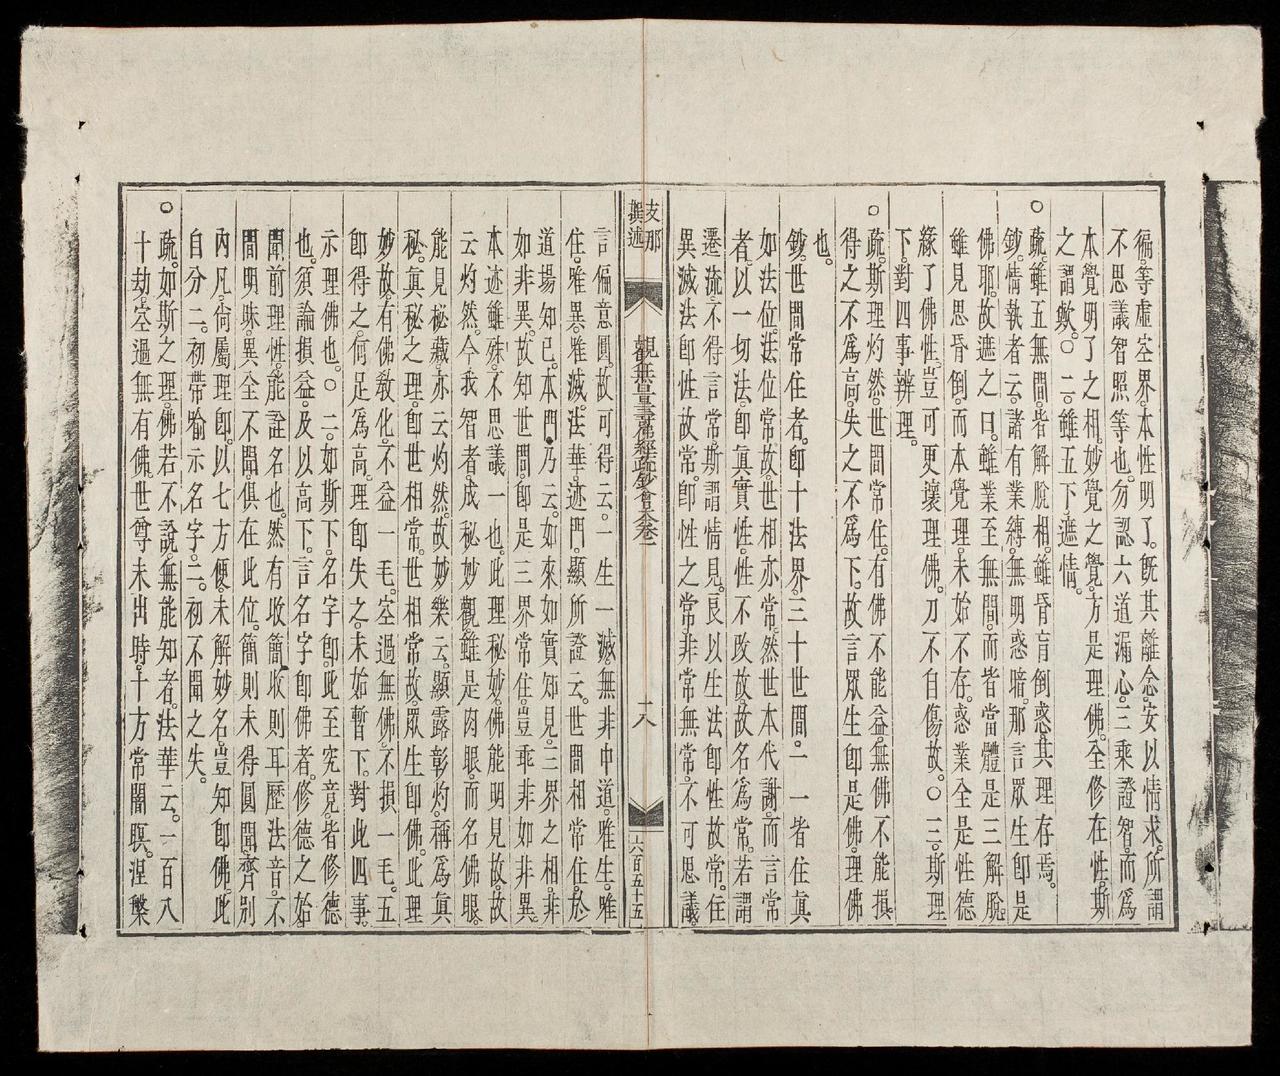 徧等虛空界本性明了旣其離念安以情求所謂
不思議智照等也勿認六道漏心三乘證智而爲
本覺明了之相妙覺之覺方是理佛全修在性斯
之謂歟○二雖五下遮情
○疏雖五無間皆解脫相雖昏盲倒惑其理存焉
鈔情執者云諸有業縛無明惑暗那言眾生卽是
佛耶故遮之曰雖業至無間而皆當體是三解脫
雖見思昏倒而本覺理未始不存惑業全是性德
緣了佛性豈可更壞理佛刀不自傷故○三斯理
下對四事辨理
○疏斯理灼然世間常住有佛不能益無佛不能損
得之不爲高失之不爲下故言眾生卽是佛理佛
也
鈔世間常住者卽十法界三十世間一一皆住眞
如法位法位常故世相亦常然世本代謝而言常
者以一切法卽眞實性性不改故故名爲常若謂
遷流不得言常斯謂情見良以生法卽性故常住
異滅法卽性故常卽性之常非常無常不可思議
支那
撰述
觀無量壽佛經疏鈔會本卷一
十八
六百五十五
言偏意圓故可得云一生一滅無非中道唯生唯
住唯異唯滅法華迹門顯所證云世間相常住於
道場知已本門乃云如來如實知見三界之相非
如非異故知世間卽是三界常住豈乖非如非異
本迹雖殊不思議一也此理秘妙佛能明見故故
云灼然今我智者成秘妙觀雖是肉眼而名佛眼
能見秘藏亦云灼然故妙樂云顯露彰灼稱爲眞
秘眞秘之理卽世相常世相常故眾生卽佛此理
妙故有佛敎化不益一毛空過無佛不損一毛五
卽得之何足爲高理卽失之未始暫下對此四事
示理佛也○二如斯下名字卽此至究竟皆修德
也須論損益及以高下言名字卽佛者修德之始
聞前理性能詮名也然有收簡收則耳歷法音不
間明昧異全不聞俱在此位簡則未得圓聞齊別
內凡尙屬理卽以七方便未解妙名豈知卽佛此
自分二初帶喻示名字二初不聞之失
○疏如斯之理佛若不說無能知者法華云一百八
十劫空過無有佛世尊未出時十方常闇暝涅槃